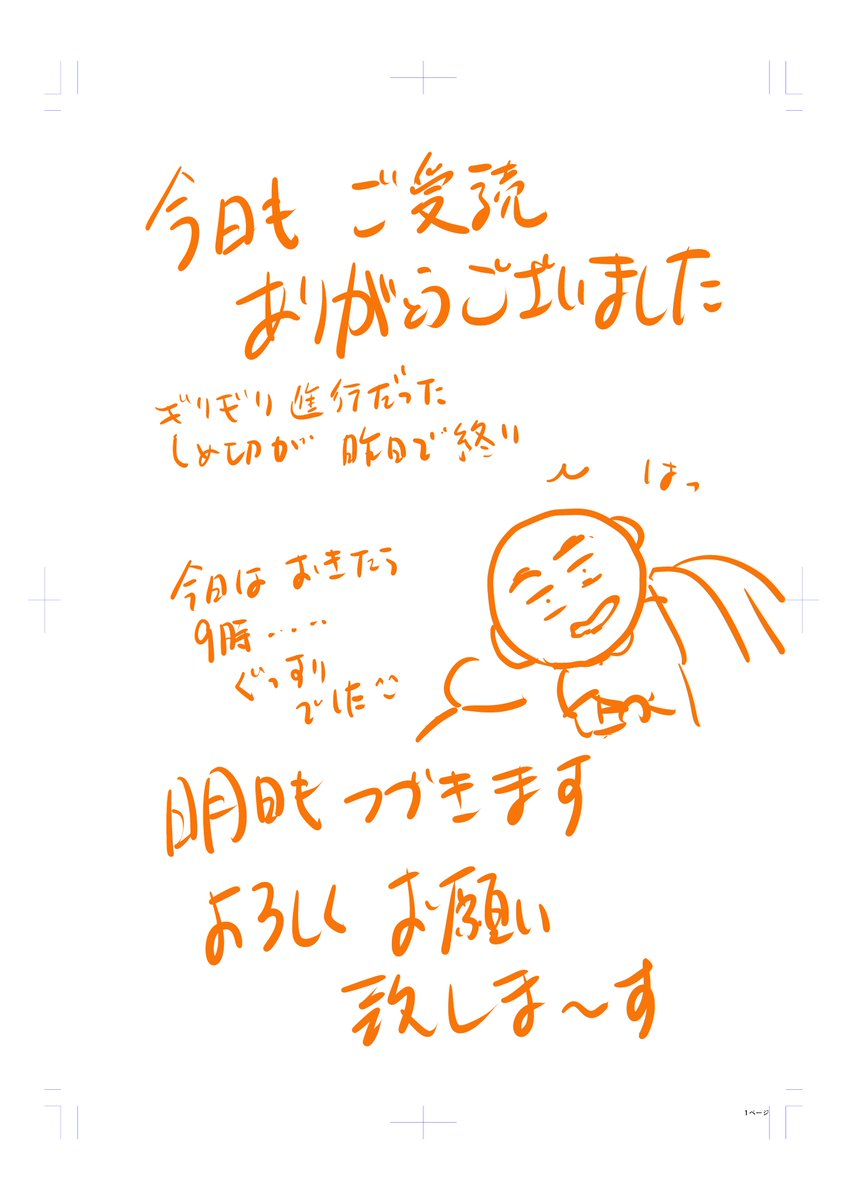 今日も ご愛読
ありがとうございました
ギリギリ進行だった
しめ切が 昨日で終り
はっ
今日は おきたら
9時‥‥
ぐっすり
でした^^
明日も つづきます
よろしく お願い
致しま〜す
1ページ